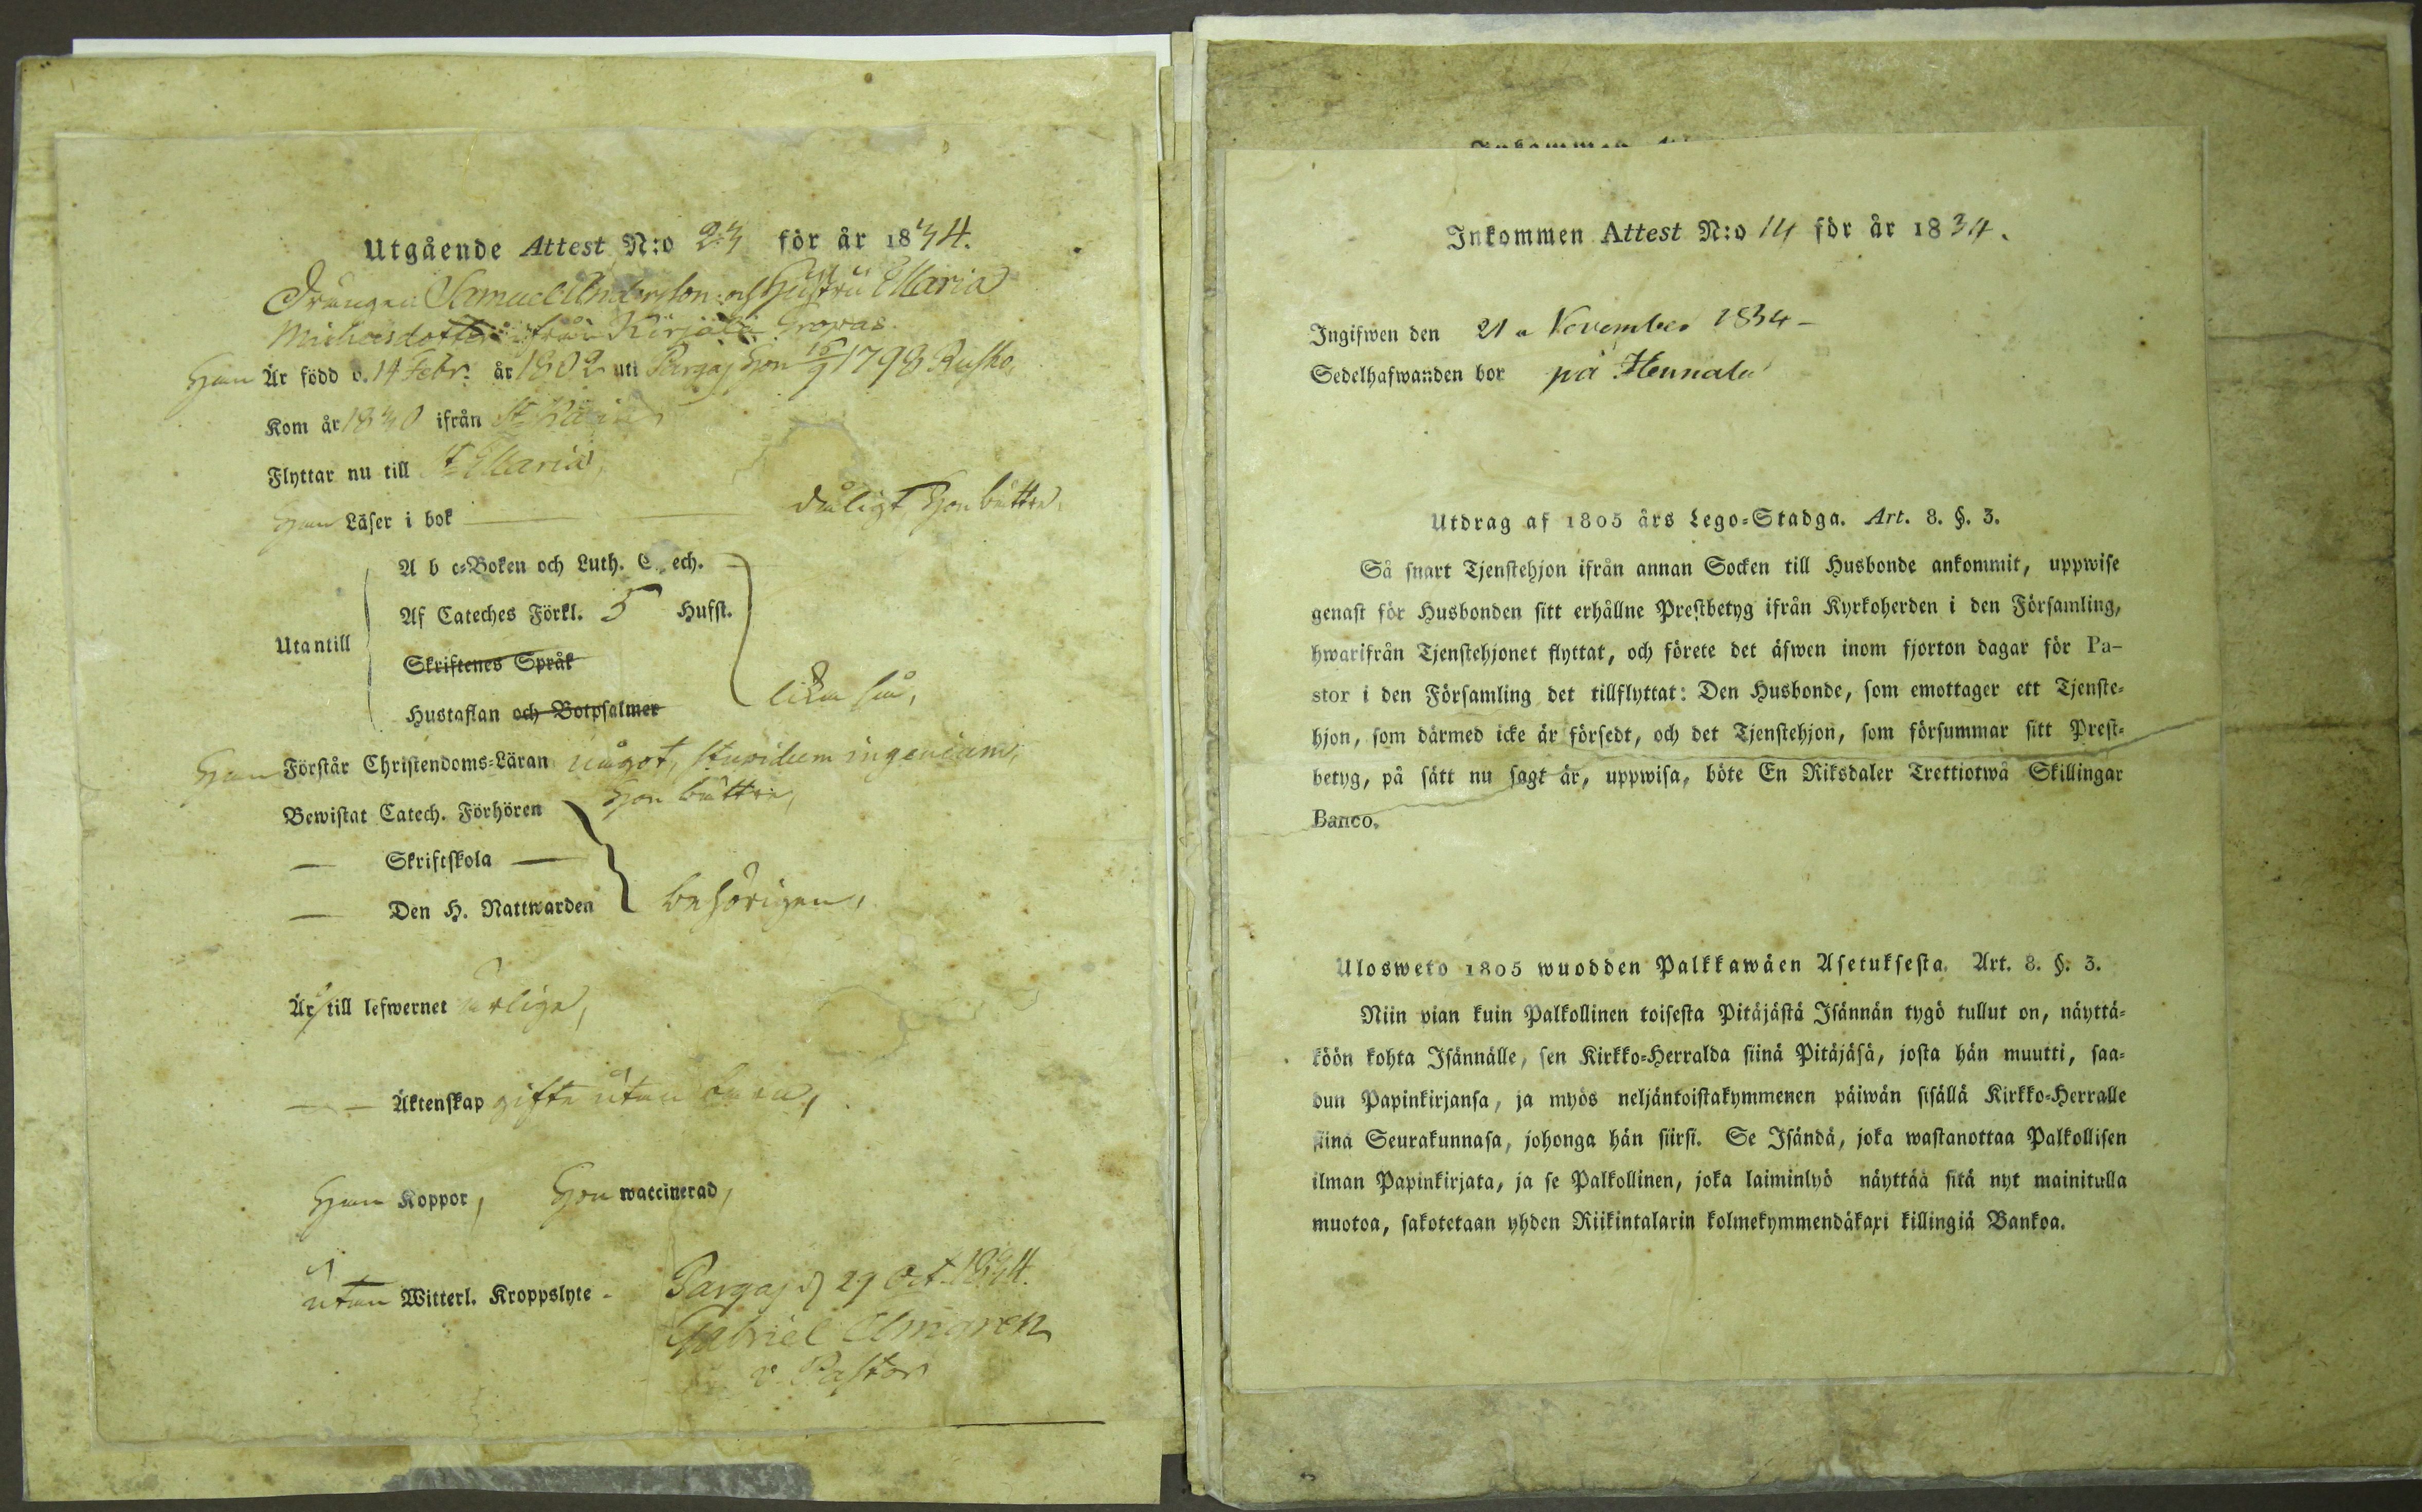 Utgående Attest N:o 23 för år 1834.
Drängen Samuel Andersson och Hustru Maria
Michelsdotter från Kirjala
Han Är född d. 14 Febr. år 1802 uti Pargas, Hon 16/9 1798 Rusko,
Kom år 1830 ifrån St
Flyttar nu till St Maria,
Han Läser i bok dåligt Hon bättre,
A b c=Boken och Luth. C ech.
Af Cateches Förkl. 5 Hufst.
Utantill
Skriftenes Språk
Hustaflan och Botpsalmer
lika så,
Han Förstår Christendoms=Läran något, stupidum ingenium,
Hon bättre,
Bewistat Catech. Förhören
— Skriftskola —
— Den H. Nattwarden behörigen,
Är till lefwernet ärliga,
— — Äktenskap gifte utan barn,
Han Koppor, Hon waccinerad,
utan Witterl. Kroppslyte. Pargas d 29 Oct. 1834.
Gabriel Almgren
v. Pastor
Inkommen Attest N:o 14 för år 1834.
Ingifwen den 21 November 1834 –
Sedelhafwanden bor på Hennala
Utdrag af 1805 års Lego=Stadga. Art. 8. §. 3.
Så snart Tjenstehjon ifrån annan Socken till Husbonde ankommit, uppwise
genast för Husbonden sitt erhållne Prestbetyg ifrån Kyrkoherden i den Församling,
hwarifrån Tjenstehjonet flyttat, och förete det äfwen inom fjorton dagar för Pa-
stor i den Församling det tillflyttat: Den Husbonde, som emottager ett Tjenste=
hjon, som därmed icke är försedt, och det Tjenstehjon, som försummar sitt Prest=
betyg, på sätt nu sagt är, uppwisa, böte En Riksdaler Trettiotwå Skillingar
Banco.
Ulosweto 1805 wuodden Palkkawäen Asetuksesta. Art. 8. §. 3.
Niin pian kuin Palkollinen toisesta Pitäjästä Isännän tygö tullut on, näyttä=
köön kohta Isännälle, sen Kirkko=Herralda siinä Pitäjäsä, josta hän muutti, saa=
dun Papinkirjansa, ja myös neljäntoistakymmenen päiwän sisällä Kirkko=Herralle
siinä Seurakunnasa, johonga hän siirsi. Se Isändä, joka wastanottaa Palkollisen
ilman Papinkirjata, ja se Palkollinen, joka laiminlyö näyttää sitä nyt mainitulla
muotoa, sakotetaan yhden Riikintalarin kolmekymmendäkaxi killingiä Bankoa.